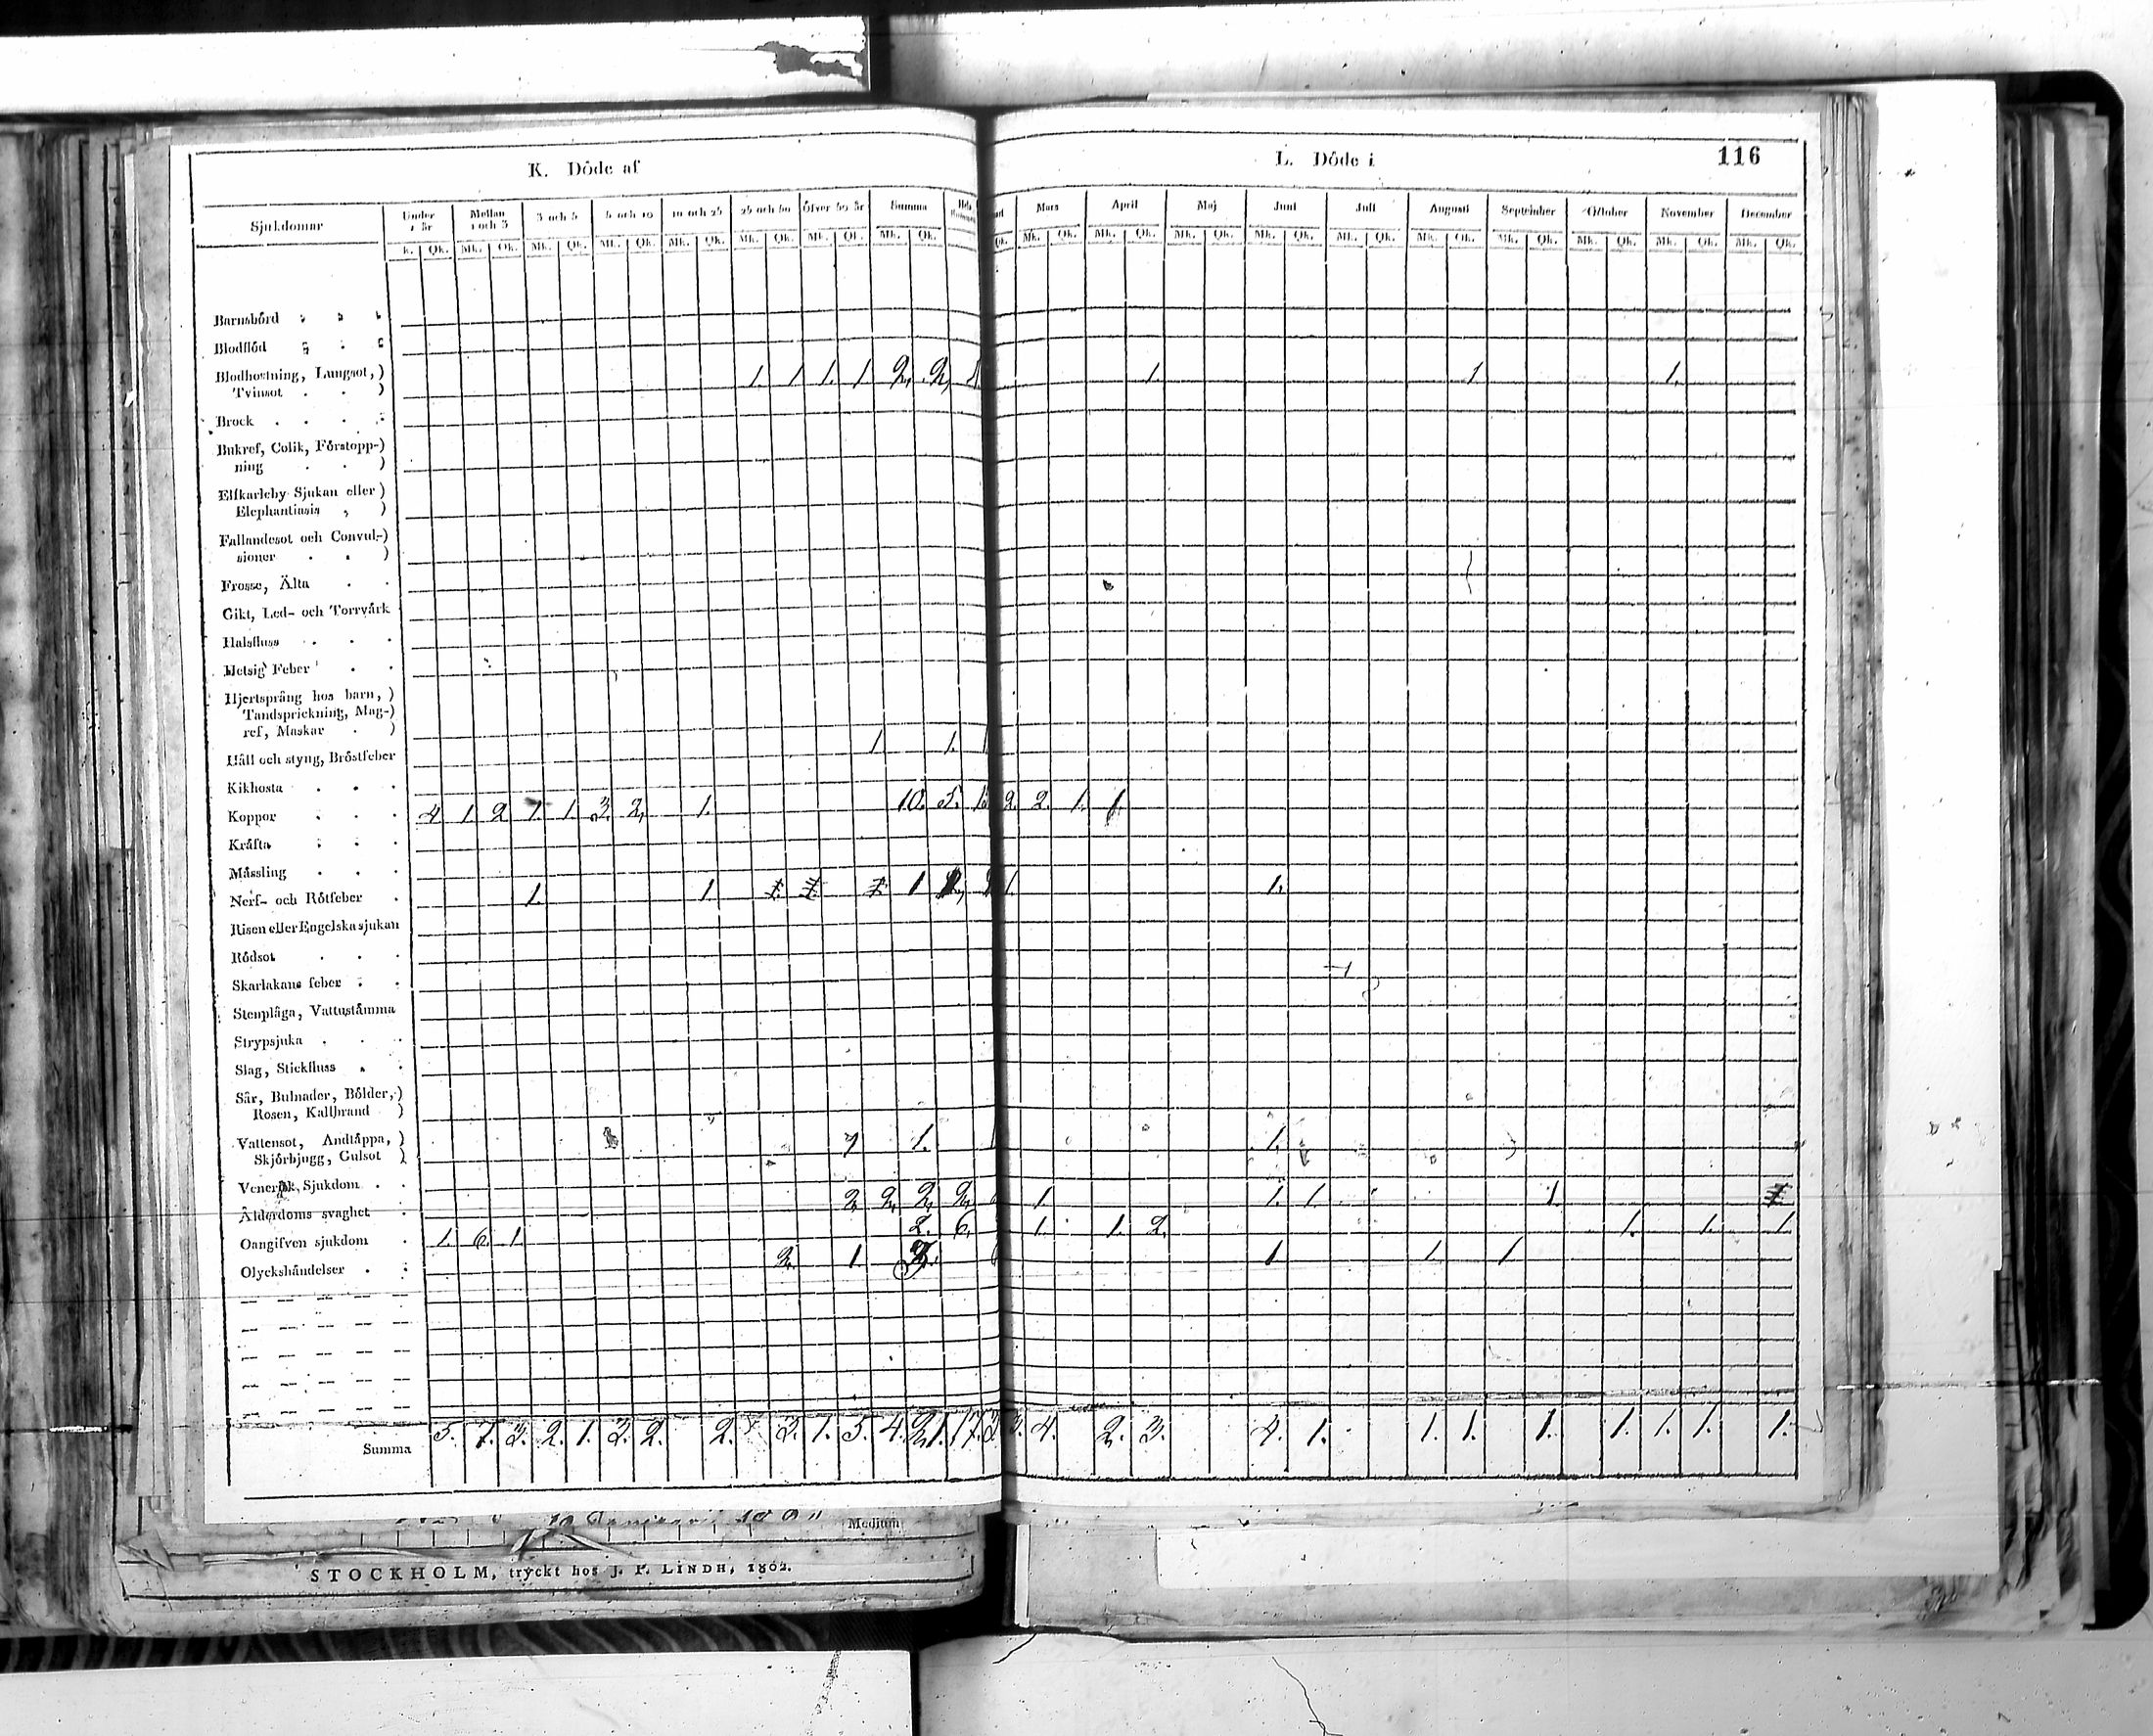 K. Döde af
L. Döde i
116
Sjukdomar Under 1 år Mellan 1 och 3 3 och 5 5 och 10 10 och 25 25 och 50 Öfver 50 år Summa Mars April Maj Junii Julii Augusti September October November December
Qk. Mk. Qk. Mk. Qk. Mk. Qk. Mk. Qk. Mk. Qk. Mk. Qk. Mk. Qk. Qk. Mk. Qk. Mk. Qk. Mk. Qk. Mk. Qk. Mk. Qk. Mk. Qk. Mk. Qk. Mk. Qk. Mk. Qk. Mk. Qk.
Barnsbörd
Blodflöd
Blodhostning, Lungsot, 1. 1 1. 1 2. 2. 1. 1 1.
Tvinsot
Brock
Bukref, Colik, Förstopp-
ning
Elfkarleby Sjukan eller
Elephantiasis
Fallandesot och Convul-
sioner
Frosse, Älta
Gikt, Led- och Torrvärk
Halsfluss
Hetsig Feber
Hjertsprång hos barn,
Tandsprickning, Mag-
ref, Maskar
Håll och styng, Bröstfeber 1 1.
Kikhosta
Koppor 4 1. 2 1. 1. 3. 2. 1. 10. 5. 2. 2. 1. 1.
Kräfta
Mässling
Nerf- och Rötfeber 1. 1. 1 1. 1.
Risen eller Engelska sjukan
Rödsot
Skarlakans feber
Stenplåga, Vattustämma
Strypsjuka
Slag, Stickfluss
Sår, Bulnader, Bölder,
Rosen, Kallbrand
Vattensot, Andtäppa, 1 1. 1 1.
Skjörbjugg, Gulsot
Venerisk Sjukdom
Ålderdoms svaghet 2. 2. 2. 2. 1. 1. 1. 1.
Oangifven sjukdom 1. 6. 1. 2. 6. 1. 1. 2. 1. 1. 1.
Olyckshändelser 2. 1. 3. 1. 1. 1
Summa 5. 7. 3. 2. 1. 3. 2. 2. 3. 1. 5. 4. 21. 17. 3. 4. 2. 3. 4. 1. 1. 1. 1. 1. 1. 1. 1.
Medium
STOCKHOLM, tryckt hos J. P. LINDH, 1802.